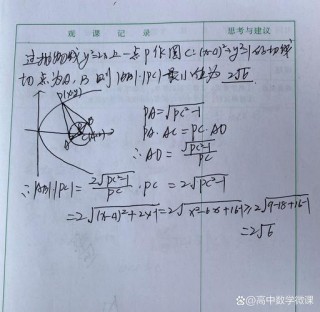 观 课 记 录
思考与建议
过抛物线y²=2x上一点P作圆C:(x-4)²+y²=1的切线
切点为A、B 则|AB|·|PC|最小值为 2√6
P(x,y)
PA=√(PC²-1)
PA·AC=PC·AD
∴AD=√(PC²-1)/PC
∴|AB|·|PC|=2√(PC²-1)/PC·PC=2√(PC²-1)
=2√((x-4)²+2x-1)=2√(x²-6x+16-1)≥2√(9-18+16-1)
=2√6
@高中数学微课